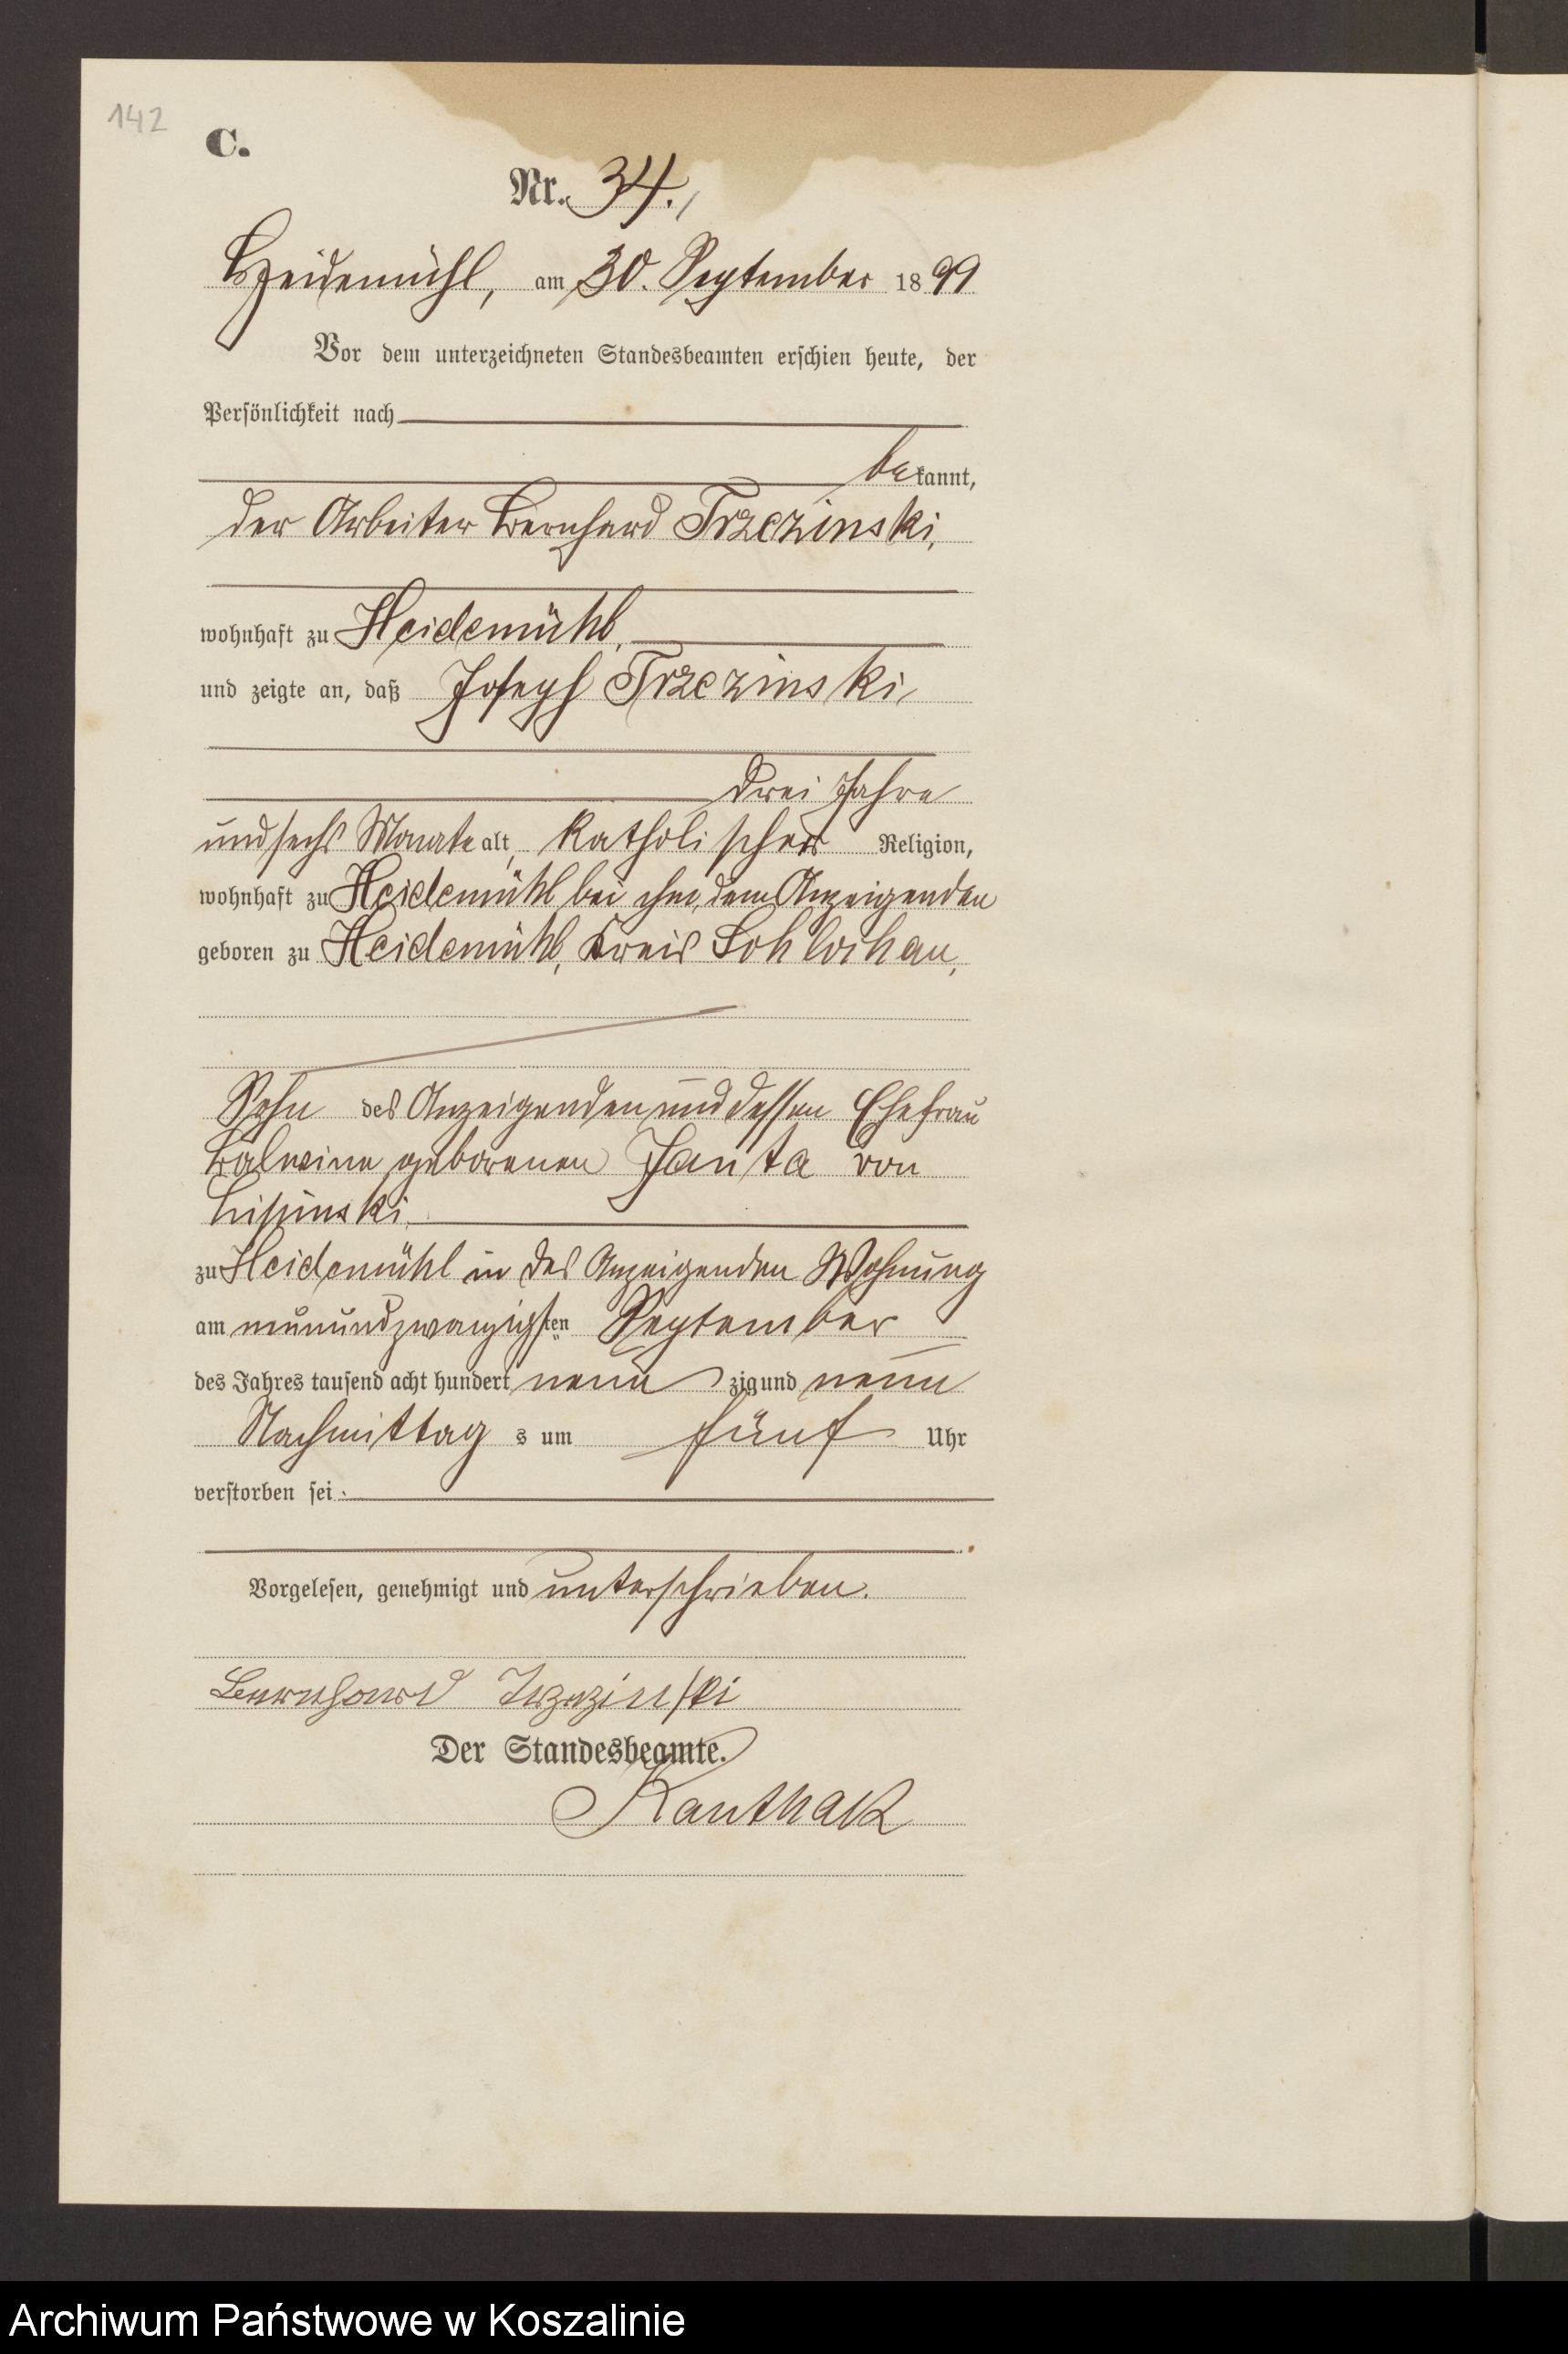 142
C.
Nr. 34.
Heidemühl, am 30. September 1899
Vor dem unterzeichneten Standesbeamten erschien heute, der
Persönlichkeit nach
bekannt,
der Arbeiter Bernhard Trzczinski,
wohnhaft zu Heidemühl,
und zeigte an, daß Joseph Trzczinski,
drei Jahre
und sechs Monate alt, katholischer Religion,
wohnhaft zu Heidemühl bei ihm, dem Anzeigenden
geboren zu Heidemühl, Kreis Schlochau,
Sohn des Anzeigenden und dessen Ehefrau
geborenen Janta von
Lipinski
zu Heidemühl in des Anzeigenden Wohnung
am neunundzwanzigsten September
des Jahres tausend acht hundert neunzig und neun
Nachmittags um fünf Uhr
verstorben sei.
Vorgelesen, genehmigt und unterschrieben.
Bernhard Trzezinski
Der Standesbeamte.
Kanthak
Archiwum Państwowe w Koszalinie